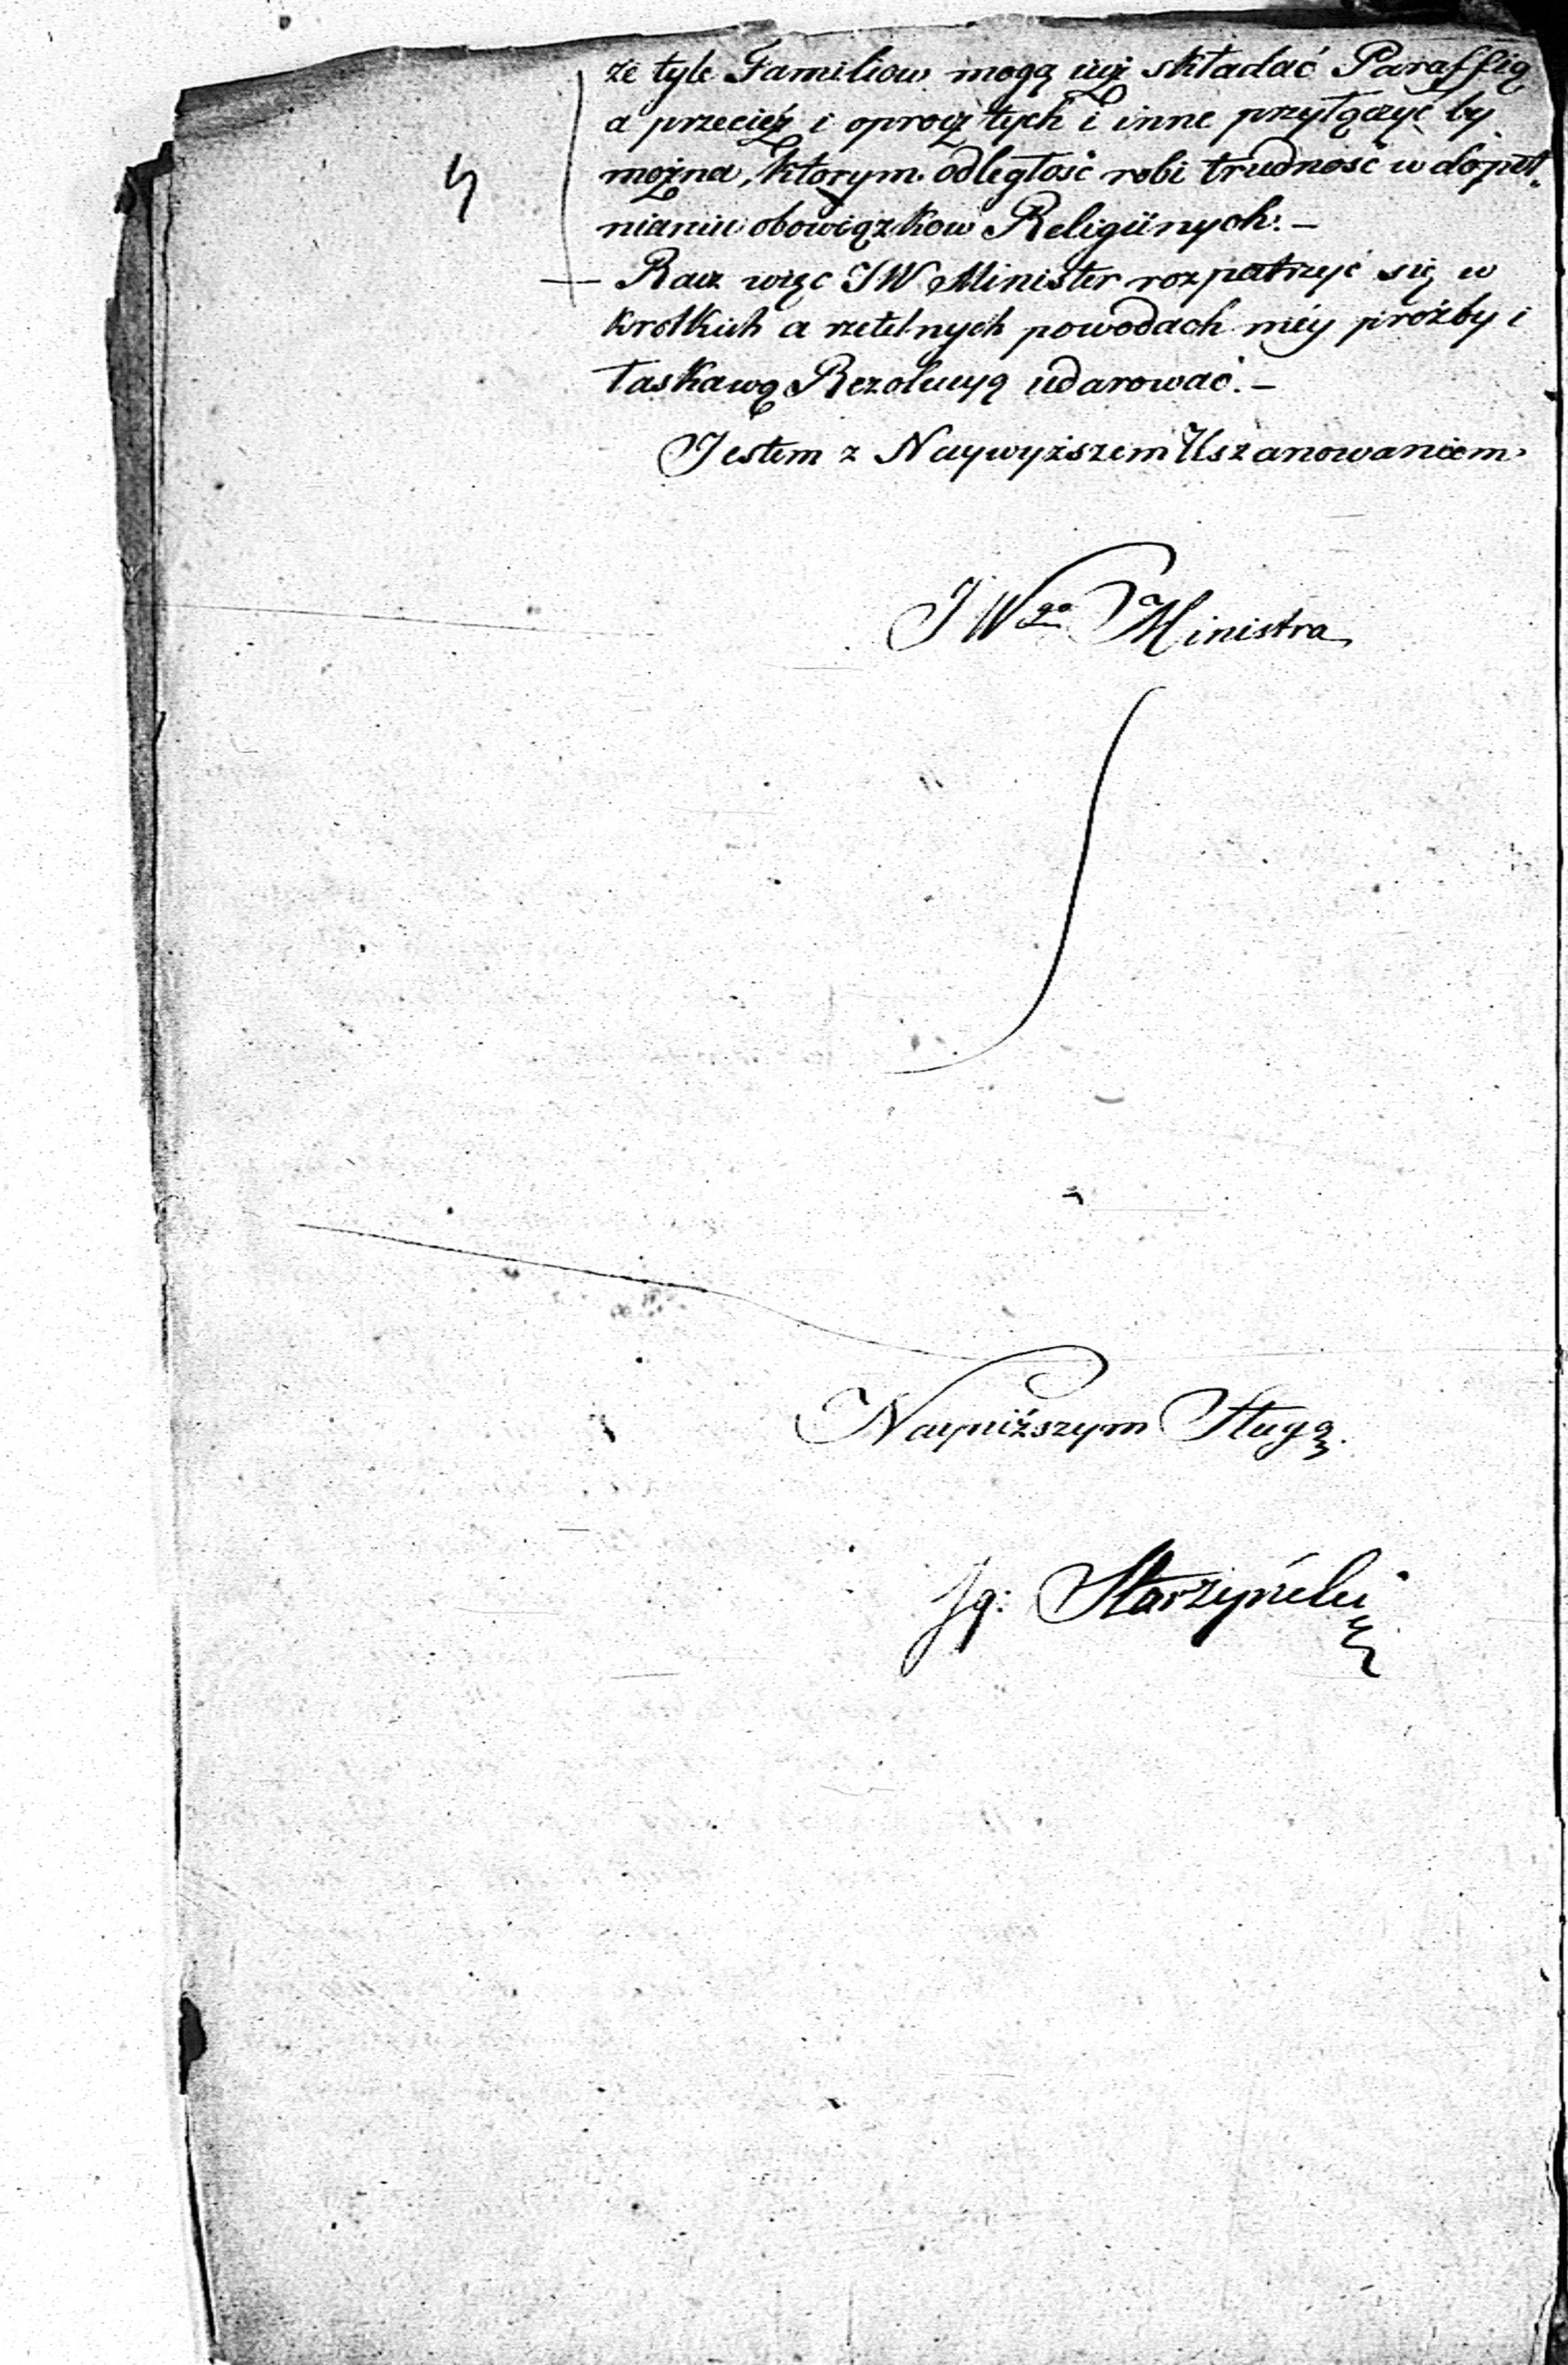 że tyle Familiow mogą iuż składać Paraffią
a przecież i oprocz tych i inne przyłączyć by
można, ktorym odległość robi trudność w dopeł-
nianiu obowiązkow Religiinych. –
– Racz więc JW Minister rozpatrzyć się w
krotkich a rzetelnych powodach méy prożby i
łaskawą Rezolucyą udarować. –
Jestem z Naywyższem Uszanowaniem
JWgo Ministra
Nayniższym Sługą.
Jg: Starzyński